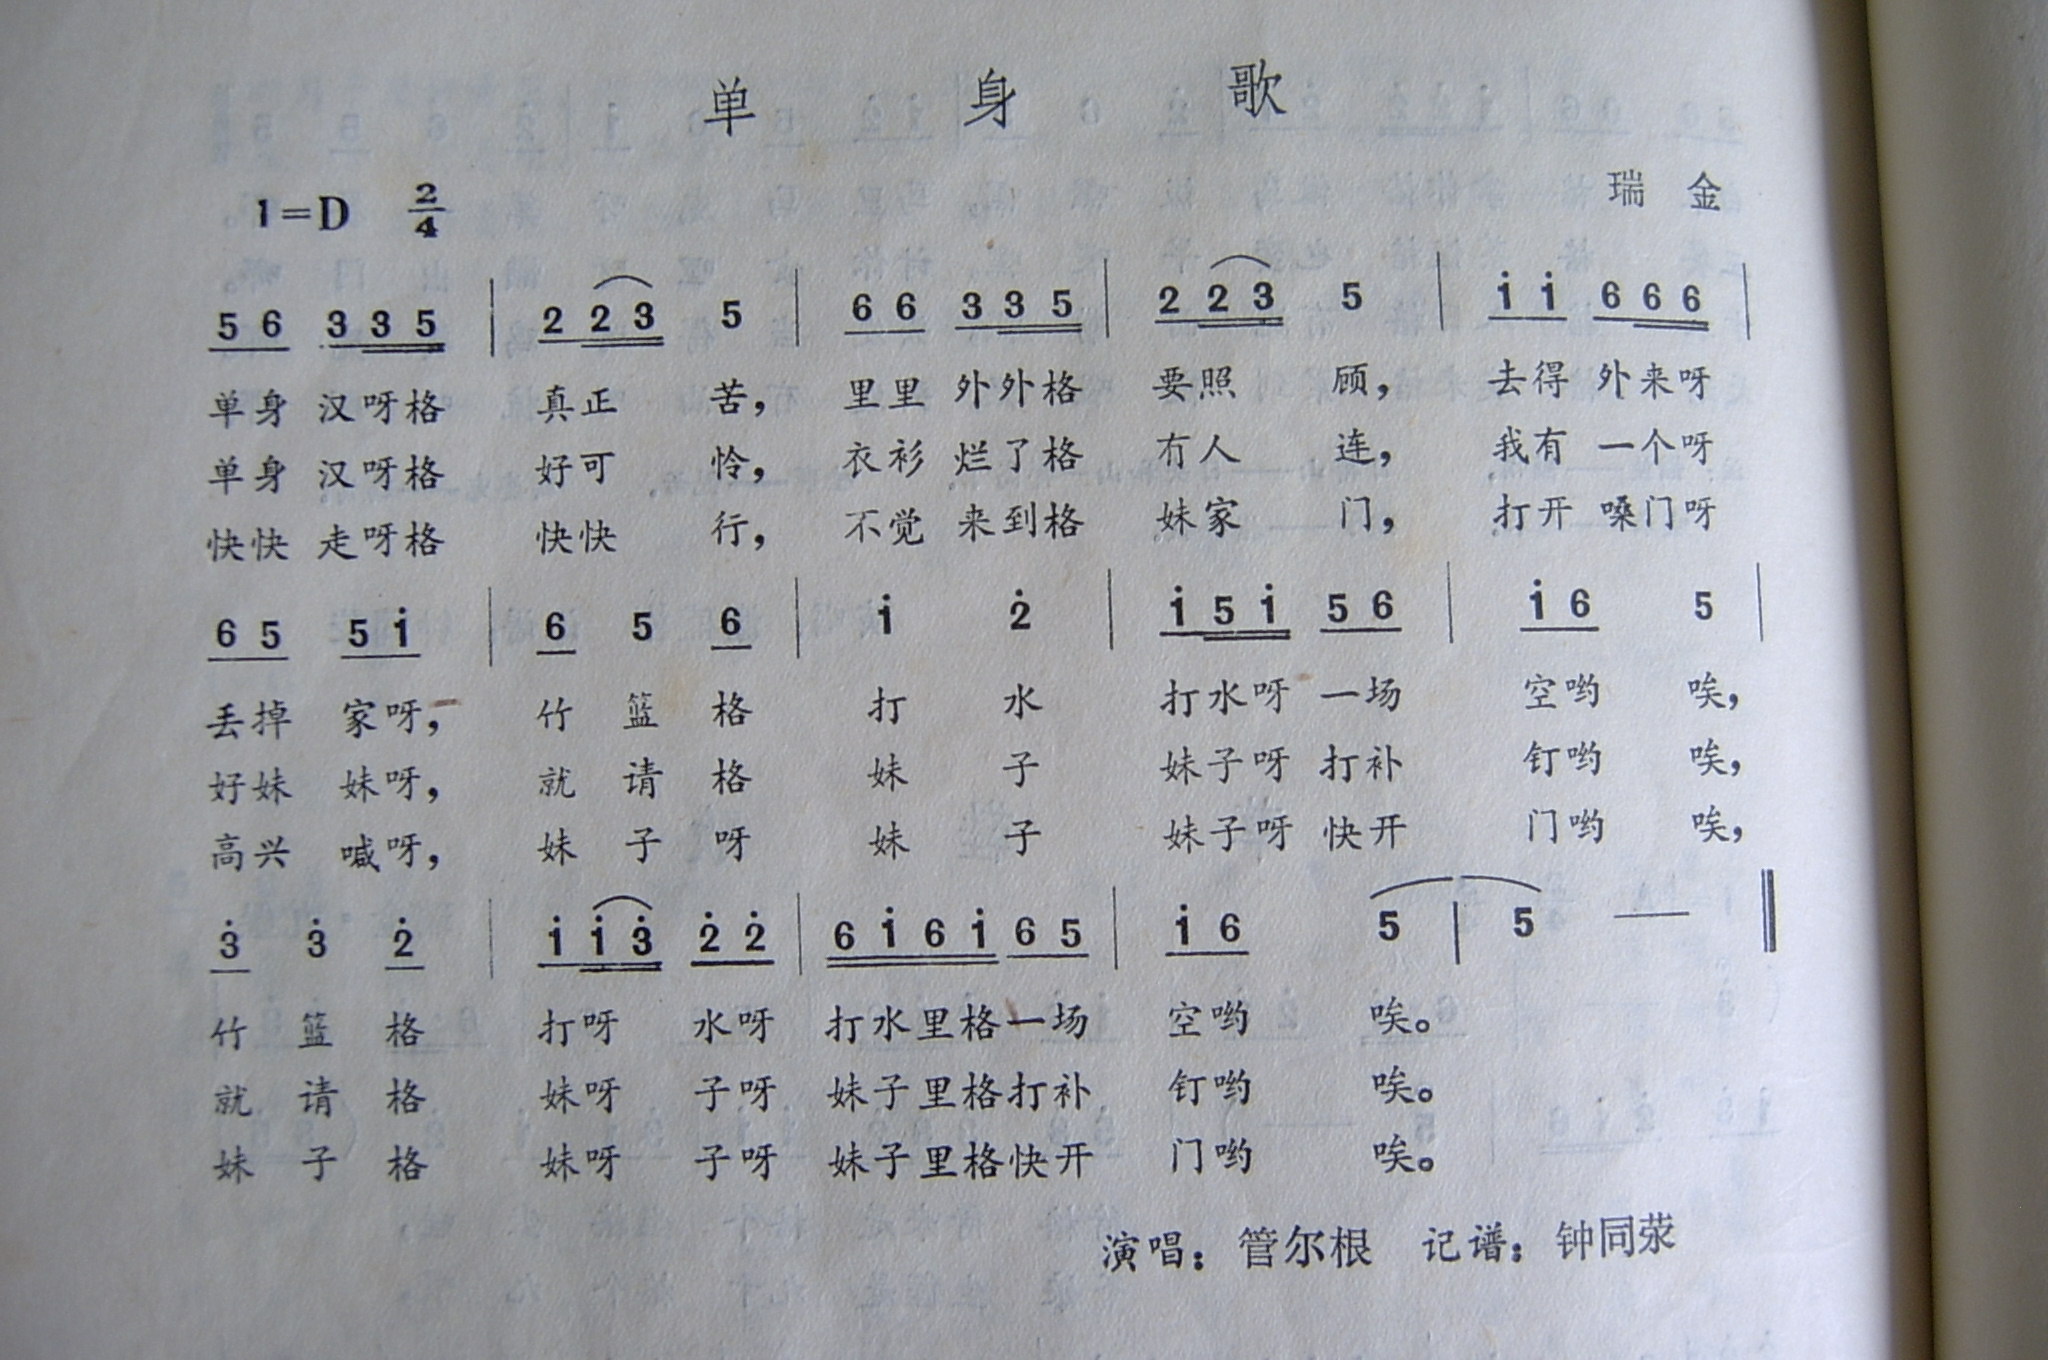 单身歌
1=D 2/4 瑞金
5 6 3 3 5 | 2 2 3 5 | 6 6 3 3 5 | 2 2 3 5 | i i 6 6 6 |
单身 汉呀格 真正 苦， 里里 外外格 要照 顾， 去得 外来呀
单身 汉呀格 好可 怜， 衣衫 烂了格 冇人 连， 我有 一个呀
快快 走呀格 快快 行， 不觉 来到格 妹家 门， 打开 嗓门呀
6 5 5 i | 6 5 6 | i 2̇ | i 5 i 5 6 | i 6 5 |
丢掉 家呀， 竹 篮 格 打 水 打水呀 一场 空哟 唉，
好妹 妹呀， 就 请 格 妹 子 妹子呀 打补 钉哟 唉，
高兴 喊呀， 妹 子 呀 妹 子 妹子呀 快开 门哟 唉，
3̇ 3̇ 2̇ | i i 3̇ 2̇ 2̇ | 6 i 6 i 6 5 | i 6 5 | 5 — ‖
竹 篮 格 打呀 水呀 打水里格一场 空哟 唉。
就 请 格 妹呀 子呀 妹子里格打补 钉哟 唉。
妹 子 格 妹呀 子呀 妹子里格快开 门哟 唉。
演唱：管尔根 记谱：钟同荥